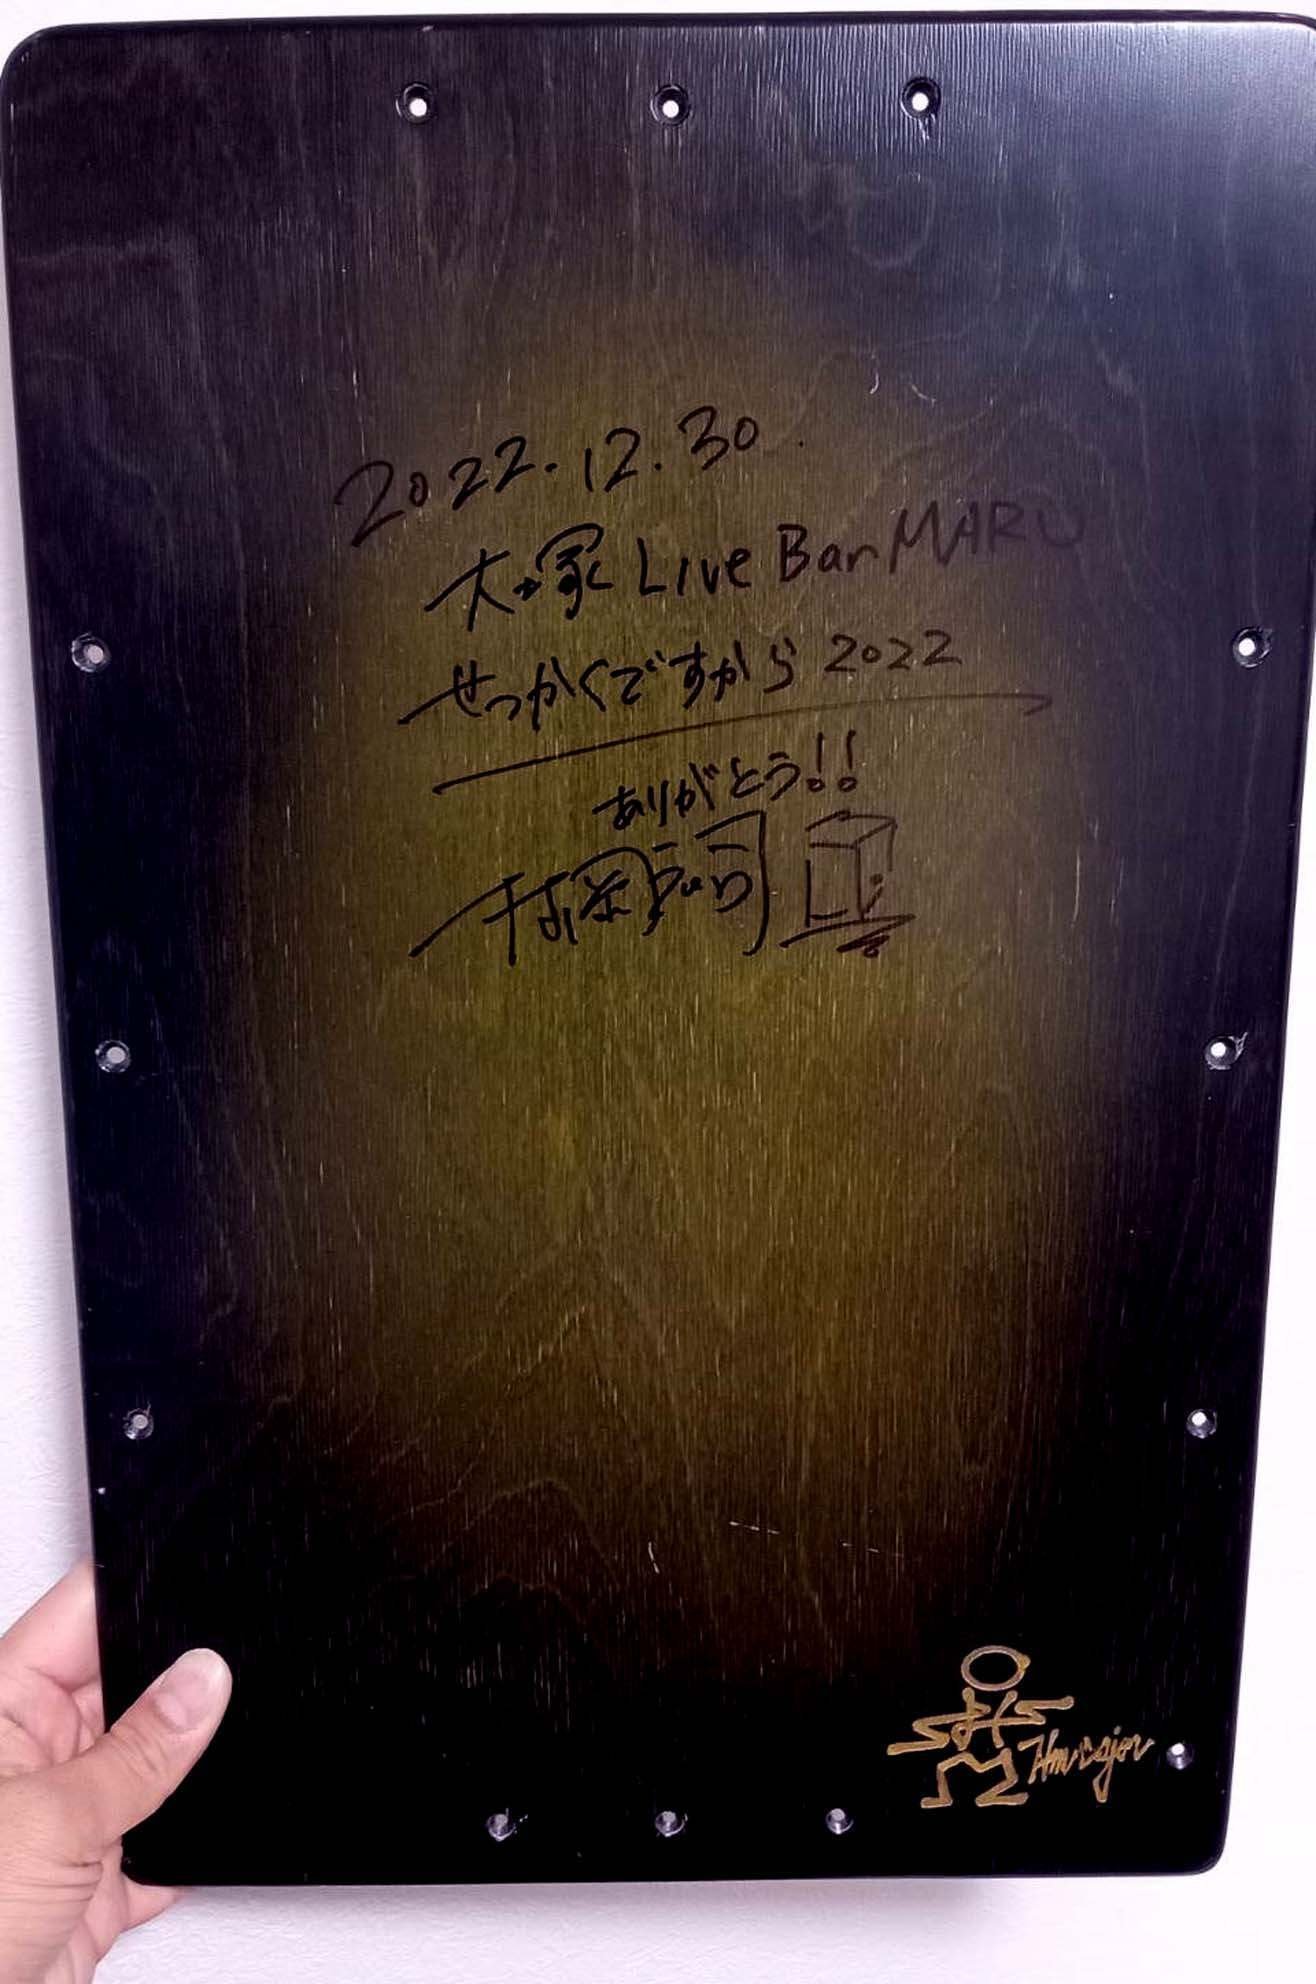 2022.12.30.
大塚 Live Bar MARU
せっかくですから 2022
ありがとう!!